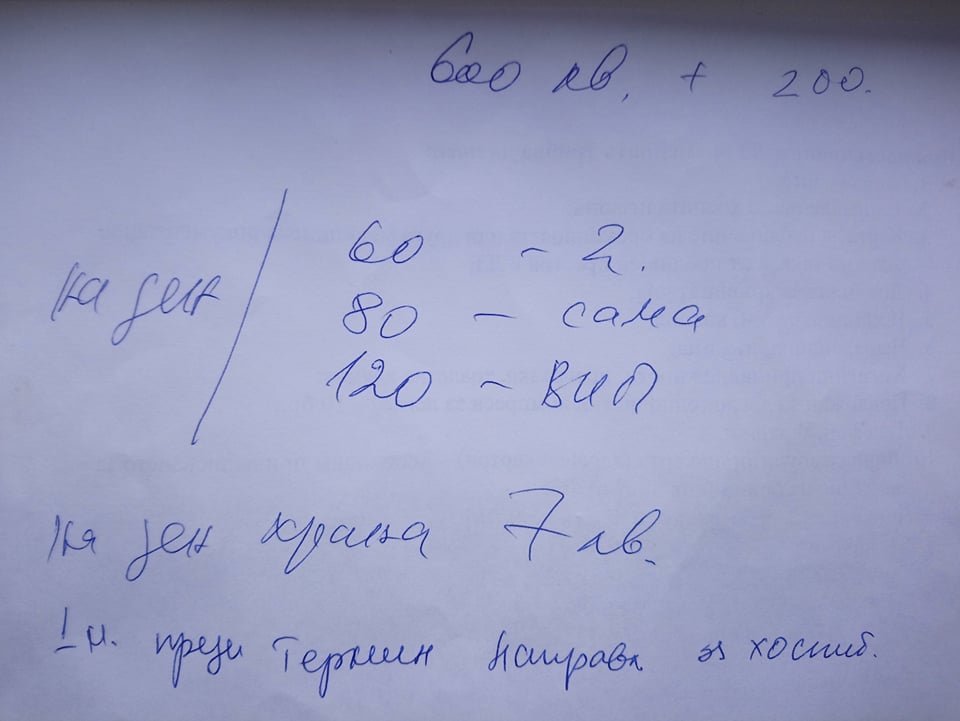 600 лв. + 200.
60 - 2.
на ден / 80 - сама
120 - ВИП
на ден храна 7 лв.
1 м. преди термин Направл за хоспит.